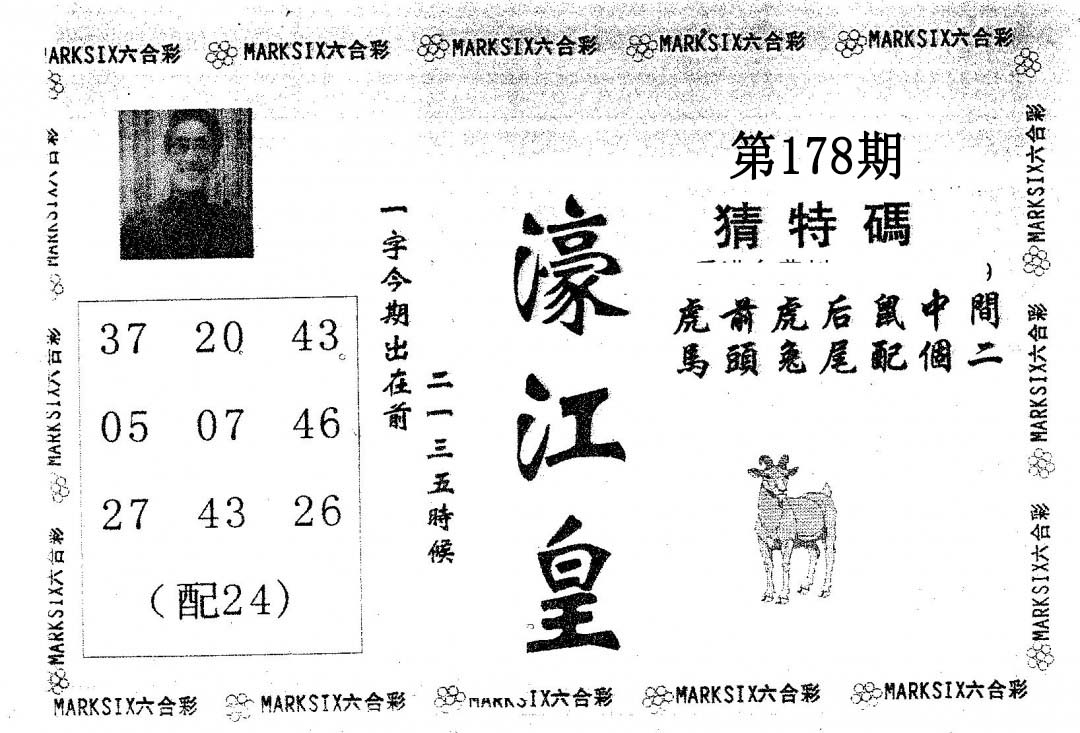 MARKSIX六合彩 MARKSIX六合彩 MARKSIX六合彩 MARKSIX六合彩
第178期
猜特碼
虎前虎后鼠中間
馬頭兔尾配個二
濠江皇
一字今期出在前
二一三五時候
37 20 43
05 07 46
27 43 26
（配24）
MARKSIX六合彩
MARKSIX六合彩
MARKSIX六合彩
MARKSIX六合彩
MARKSIX六合彩
MARKSIX六合彩 MARKSIX六合彩 MARKSIX六合彩 MARKSIX六合彩